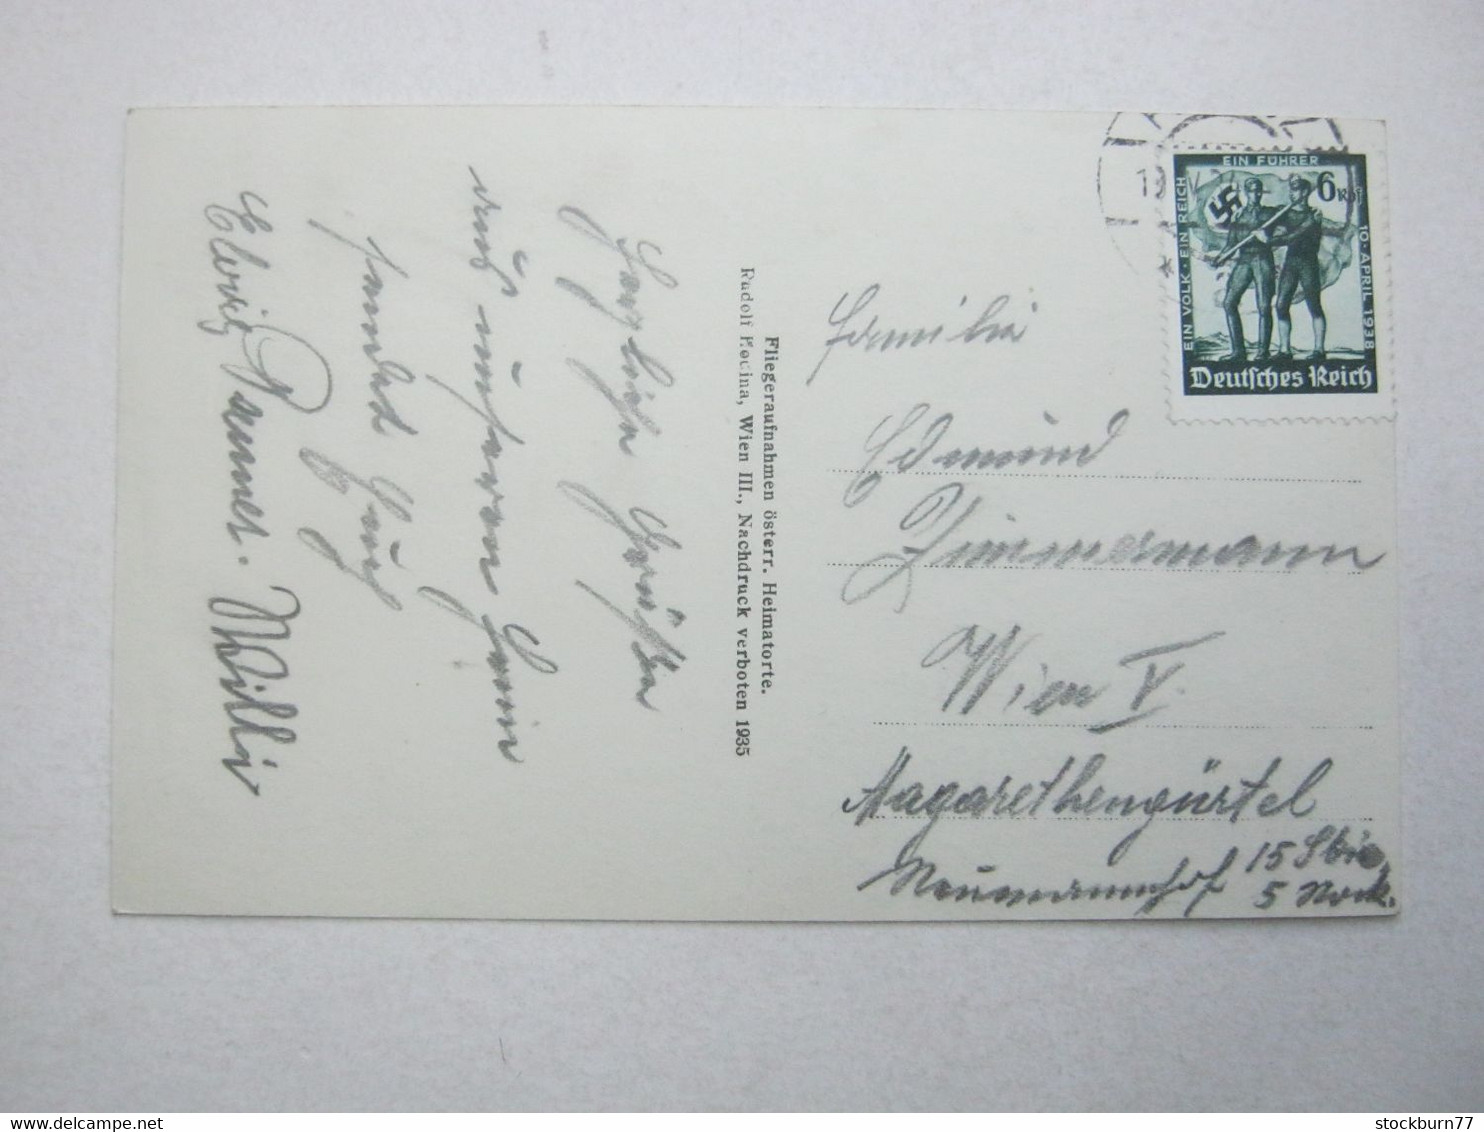 Herzliche Grüße
aus unserem Heim
sendet Euch
Pammer. Willi
Fliegeraufnahmen österr. Heimatorte.
Rudolf Hedina, Wien III., Nachdruck verboten 1935
EIN VOLK · EIN REICH
EIN FÜHRER
10 · APRIL 1938
6 Rpf
Deutsches Reich
Familie
Edmund
Zimmermann
Wien V.
Magarethengürtel
Neumannhof 15 Stie
5 Nork.
delcampe.net
stockburn77